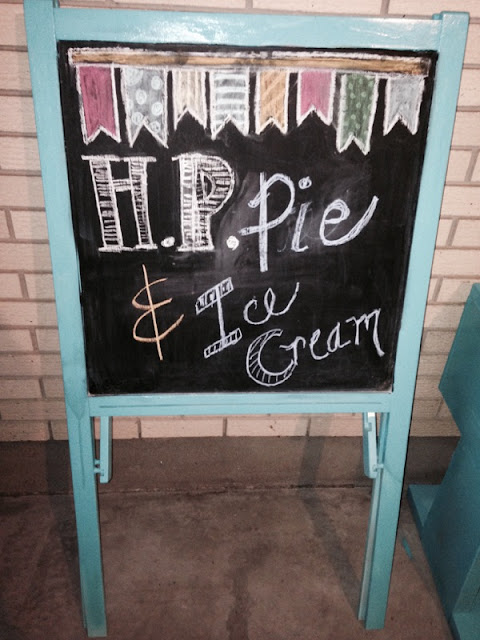 H.P. Pie
& Ice
Cream